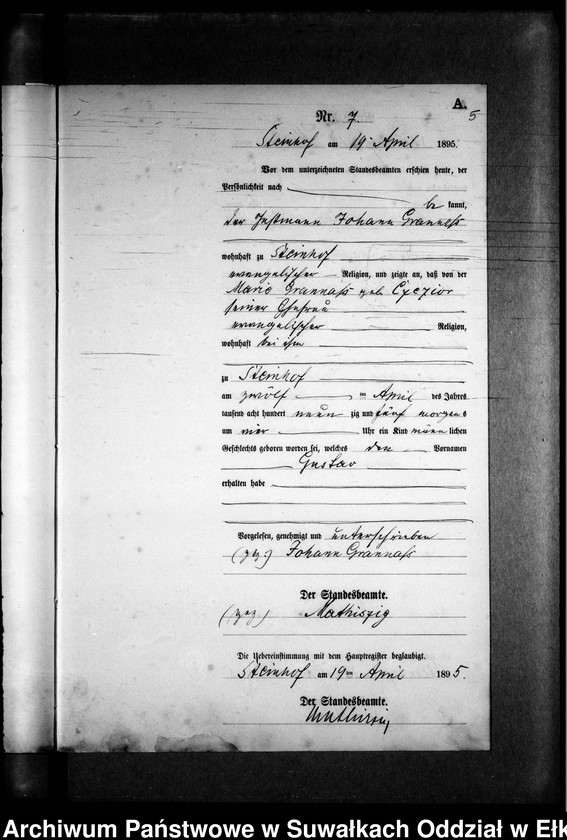 A.
5
Nr. 7.
Steinhof am 19ten April 1895.
Vor dem unterzeichneten Standesbeamten erschien heute, der
Persönlichkeit nach
be kannt,
der Instmann Johann Grannass
wohnhaft zu Steinhof
evangelischer Religion, und zeigte an, daß von der
Marie Grannass geb. Cyczior
seiner Ehefrau
evangelischer Religion,
wohnhaft bei ihm
zu Steinhof
am zwölf ten April des Jahres
tausend acht hundert neun zig und fünf morgens
um vier Uhr ein Kind männ lichen
Geschlechts geboren worden sei, welches den Vornamen
Gustav
erhalten habe
Vorgelesen, genehmigt und unterschrieben
(gez.) Johann Grannass
Der Standesbeamte.
(gez) Mathiszig
Die Uebereinstimmung mit dem Hauptregister beglaubigt.
Steinhof am 19ten April 1895.
Der Standesbeamte.
Mathiszig
Archiwum Państwowe w Suwałkach Oddział w Ełk